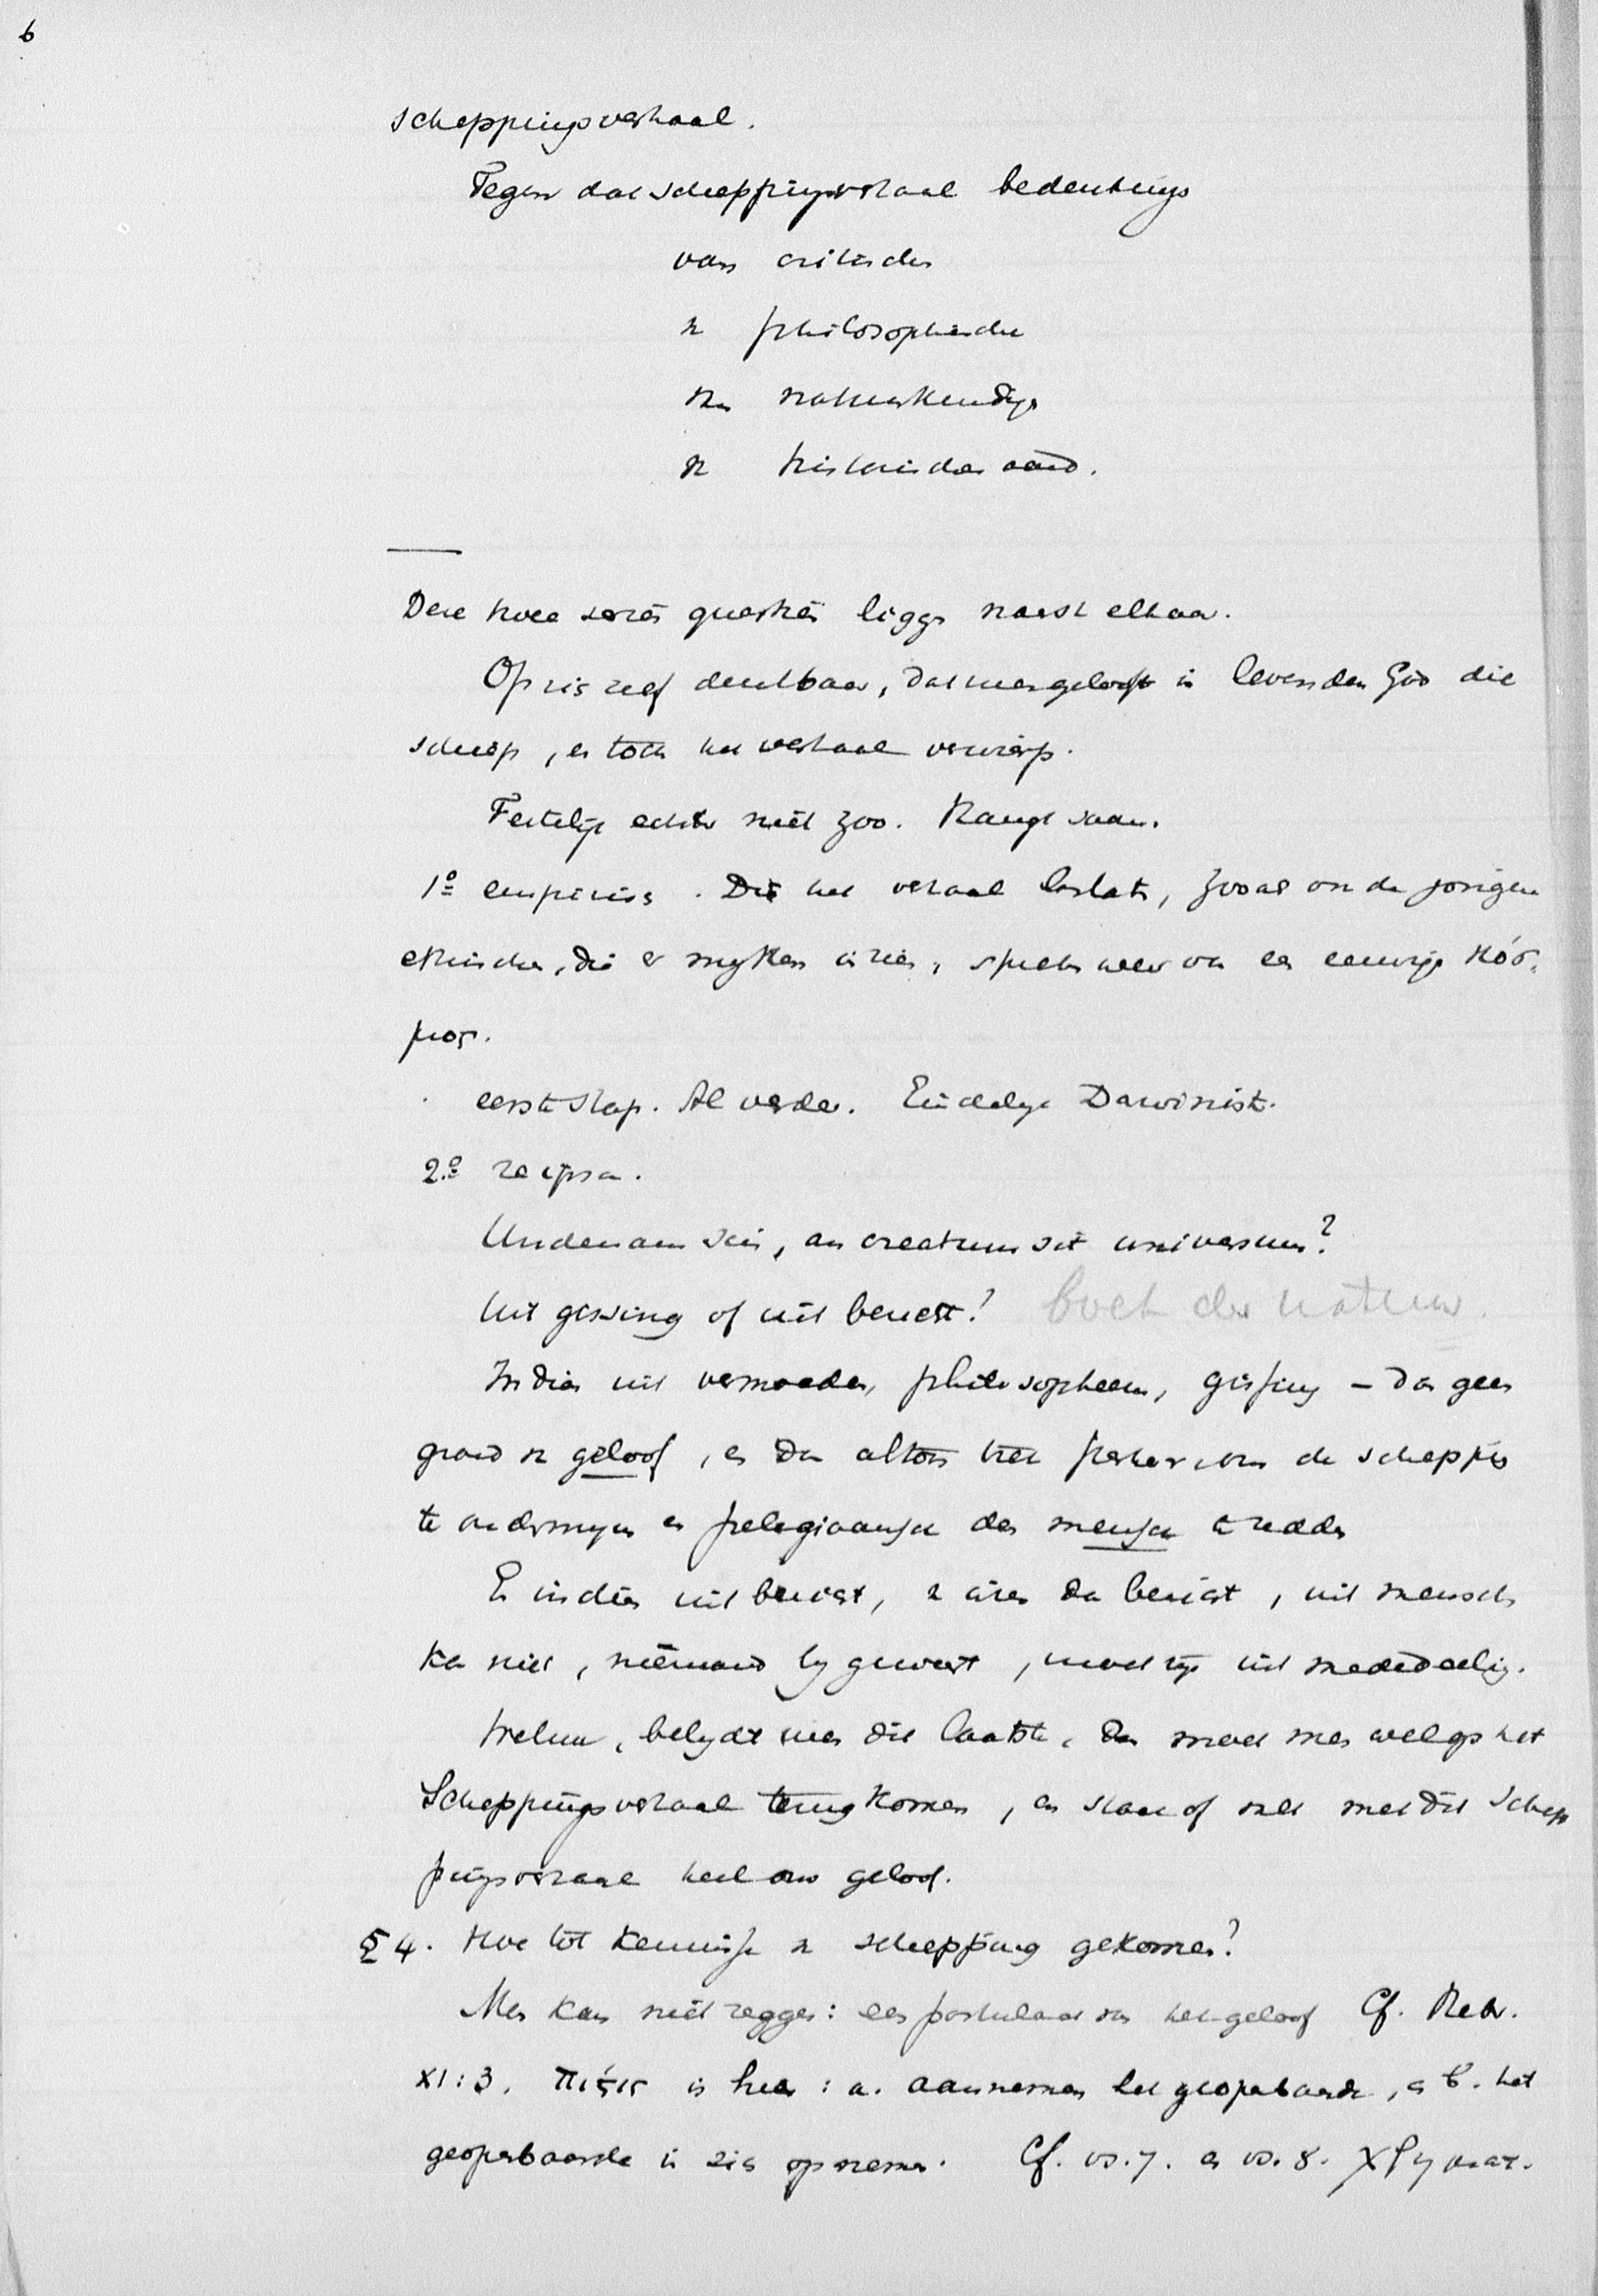 6
scheppingsverhaal.
Tegen dat scheppingsverhaal bedenkings
van critischen
n philosophischen
n natuurkundige
n historischen aard.
Deze twee soorten questies liggen naast elkaar.
Op zich zelf denkbaar, dat men gelooft in levenden God die
schiep, en toch het verhaal verwierp.
Feitelijk echter niet zoo. Hangt saam.
1º empirisch. Die het verhaal loslaat, zooals onder jongere
ethischen, die er mythen in zien, spreekt weer van een eeuwige κόσ-
μος.
eerste stap. Al verder. Eindelijk Darwinist.
2º re ipsa.
Undenam scis, an creatum sit universum?
Uit gissing of uit bericht? boek der natuur.
Indien uit vermoeden, philosopheem, gissing – dan geen
grond v geloof, en dan althans niet zeker om de schepping
te ondermijnen en pelagiaansch den mensch te redden
En indien uit bericht, n waren dan bericht, uit mensch
kan niet, niemand bij geweest, moet zijn uit mededeeling.
Welnu, belijdt men dit laatste, dan moet men wel op het
Scheppingsverhaal terugkomen, en staat of valt met dit Schep
pingsverhaal heel ons geloof.
§ 4. Hoe tot kennisse v schepping gekomen?
Men kan niet zeggen: een postulaat van het geloof Cf. Hebr.
XI:3. πίστις is hier: a. aannemen het geopenbaarde, en b. het
geopenbaarde in zich opnemen. Cf. vs. 7. en vs. 8. χρηματ.